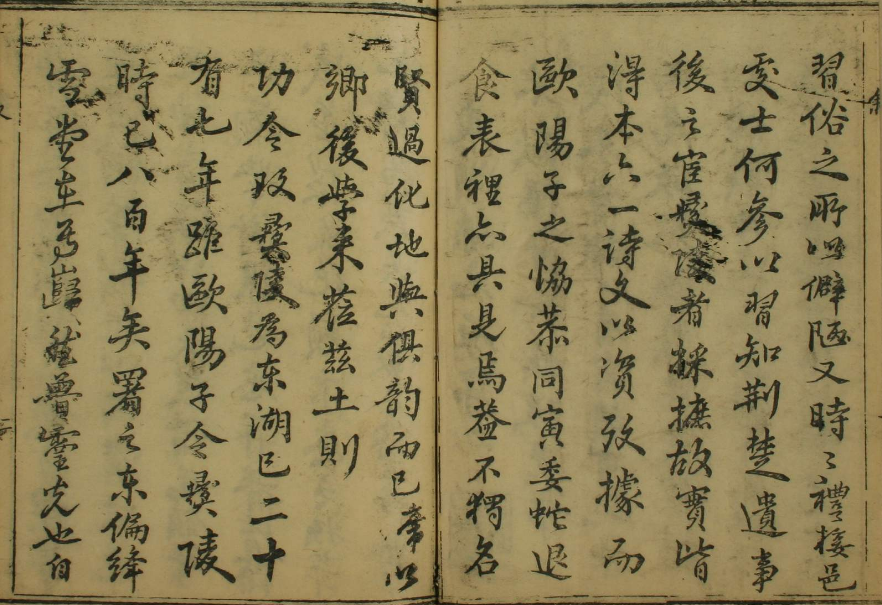 習俗之所以僻陋又時〻禮接邑
處士何參以習知荆楚遺事
後之宦彝陵者採摭故實皆
得本六一詩文以資攷據而
歐陽子之恊恭同寅委蛇退
食表裡亦具是焉葢不獨名
賢過化地與俱韵而已席以
鄉後學来莅兹土則
功令改彝陵為东湖已二十
有七年距歐陽子令彝陵
時已八百年矣署之东偏絳
雪堂在焉巋然魯靈光也自